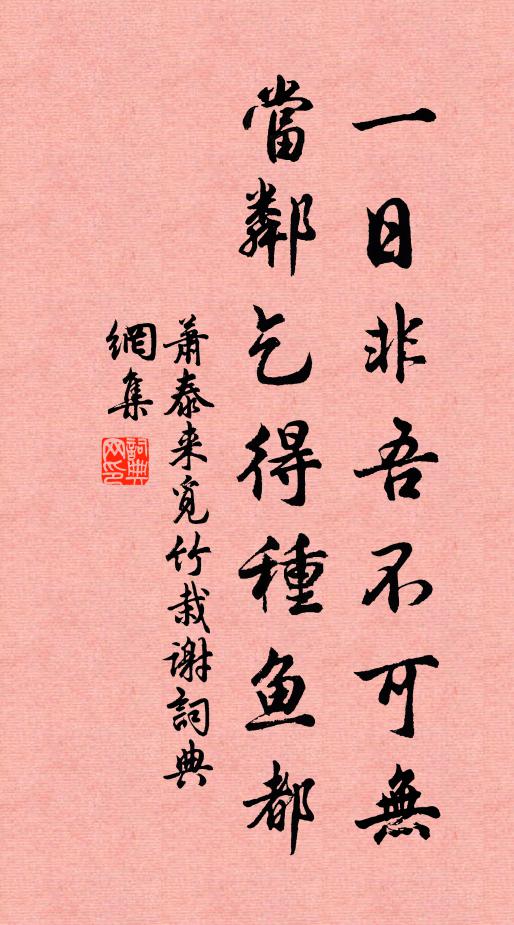 一日非吾不可無
當鄰乞得種鱼都
萧泰来觅竹栽谢詞典
網集
詞典网印